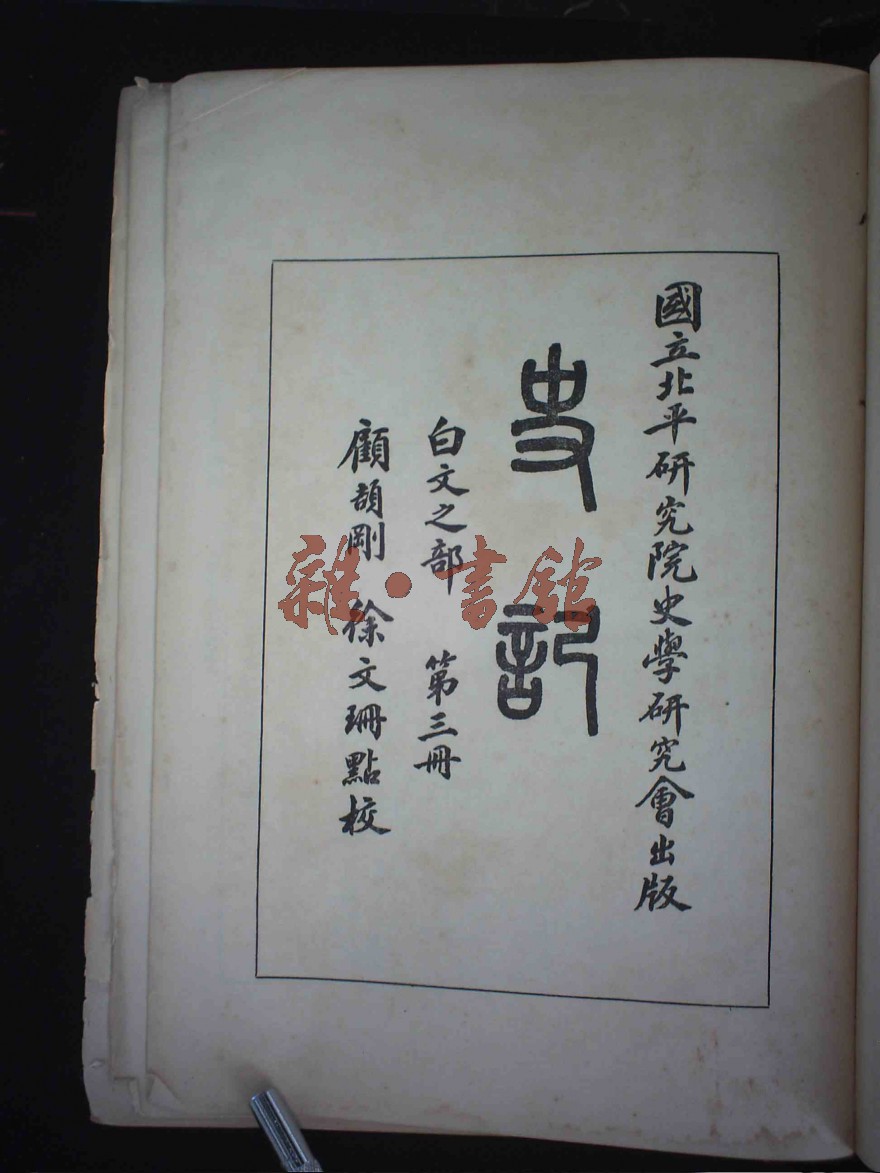 國立北平研究院史學研究會出版
史記
白文之部 第三冊
顧頡剛 徐文珊點校
雜·書館